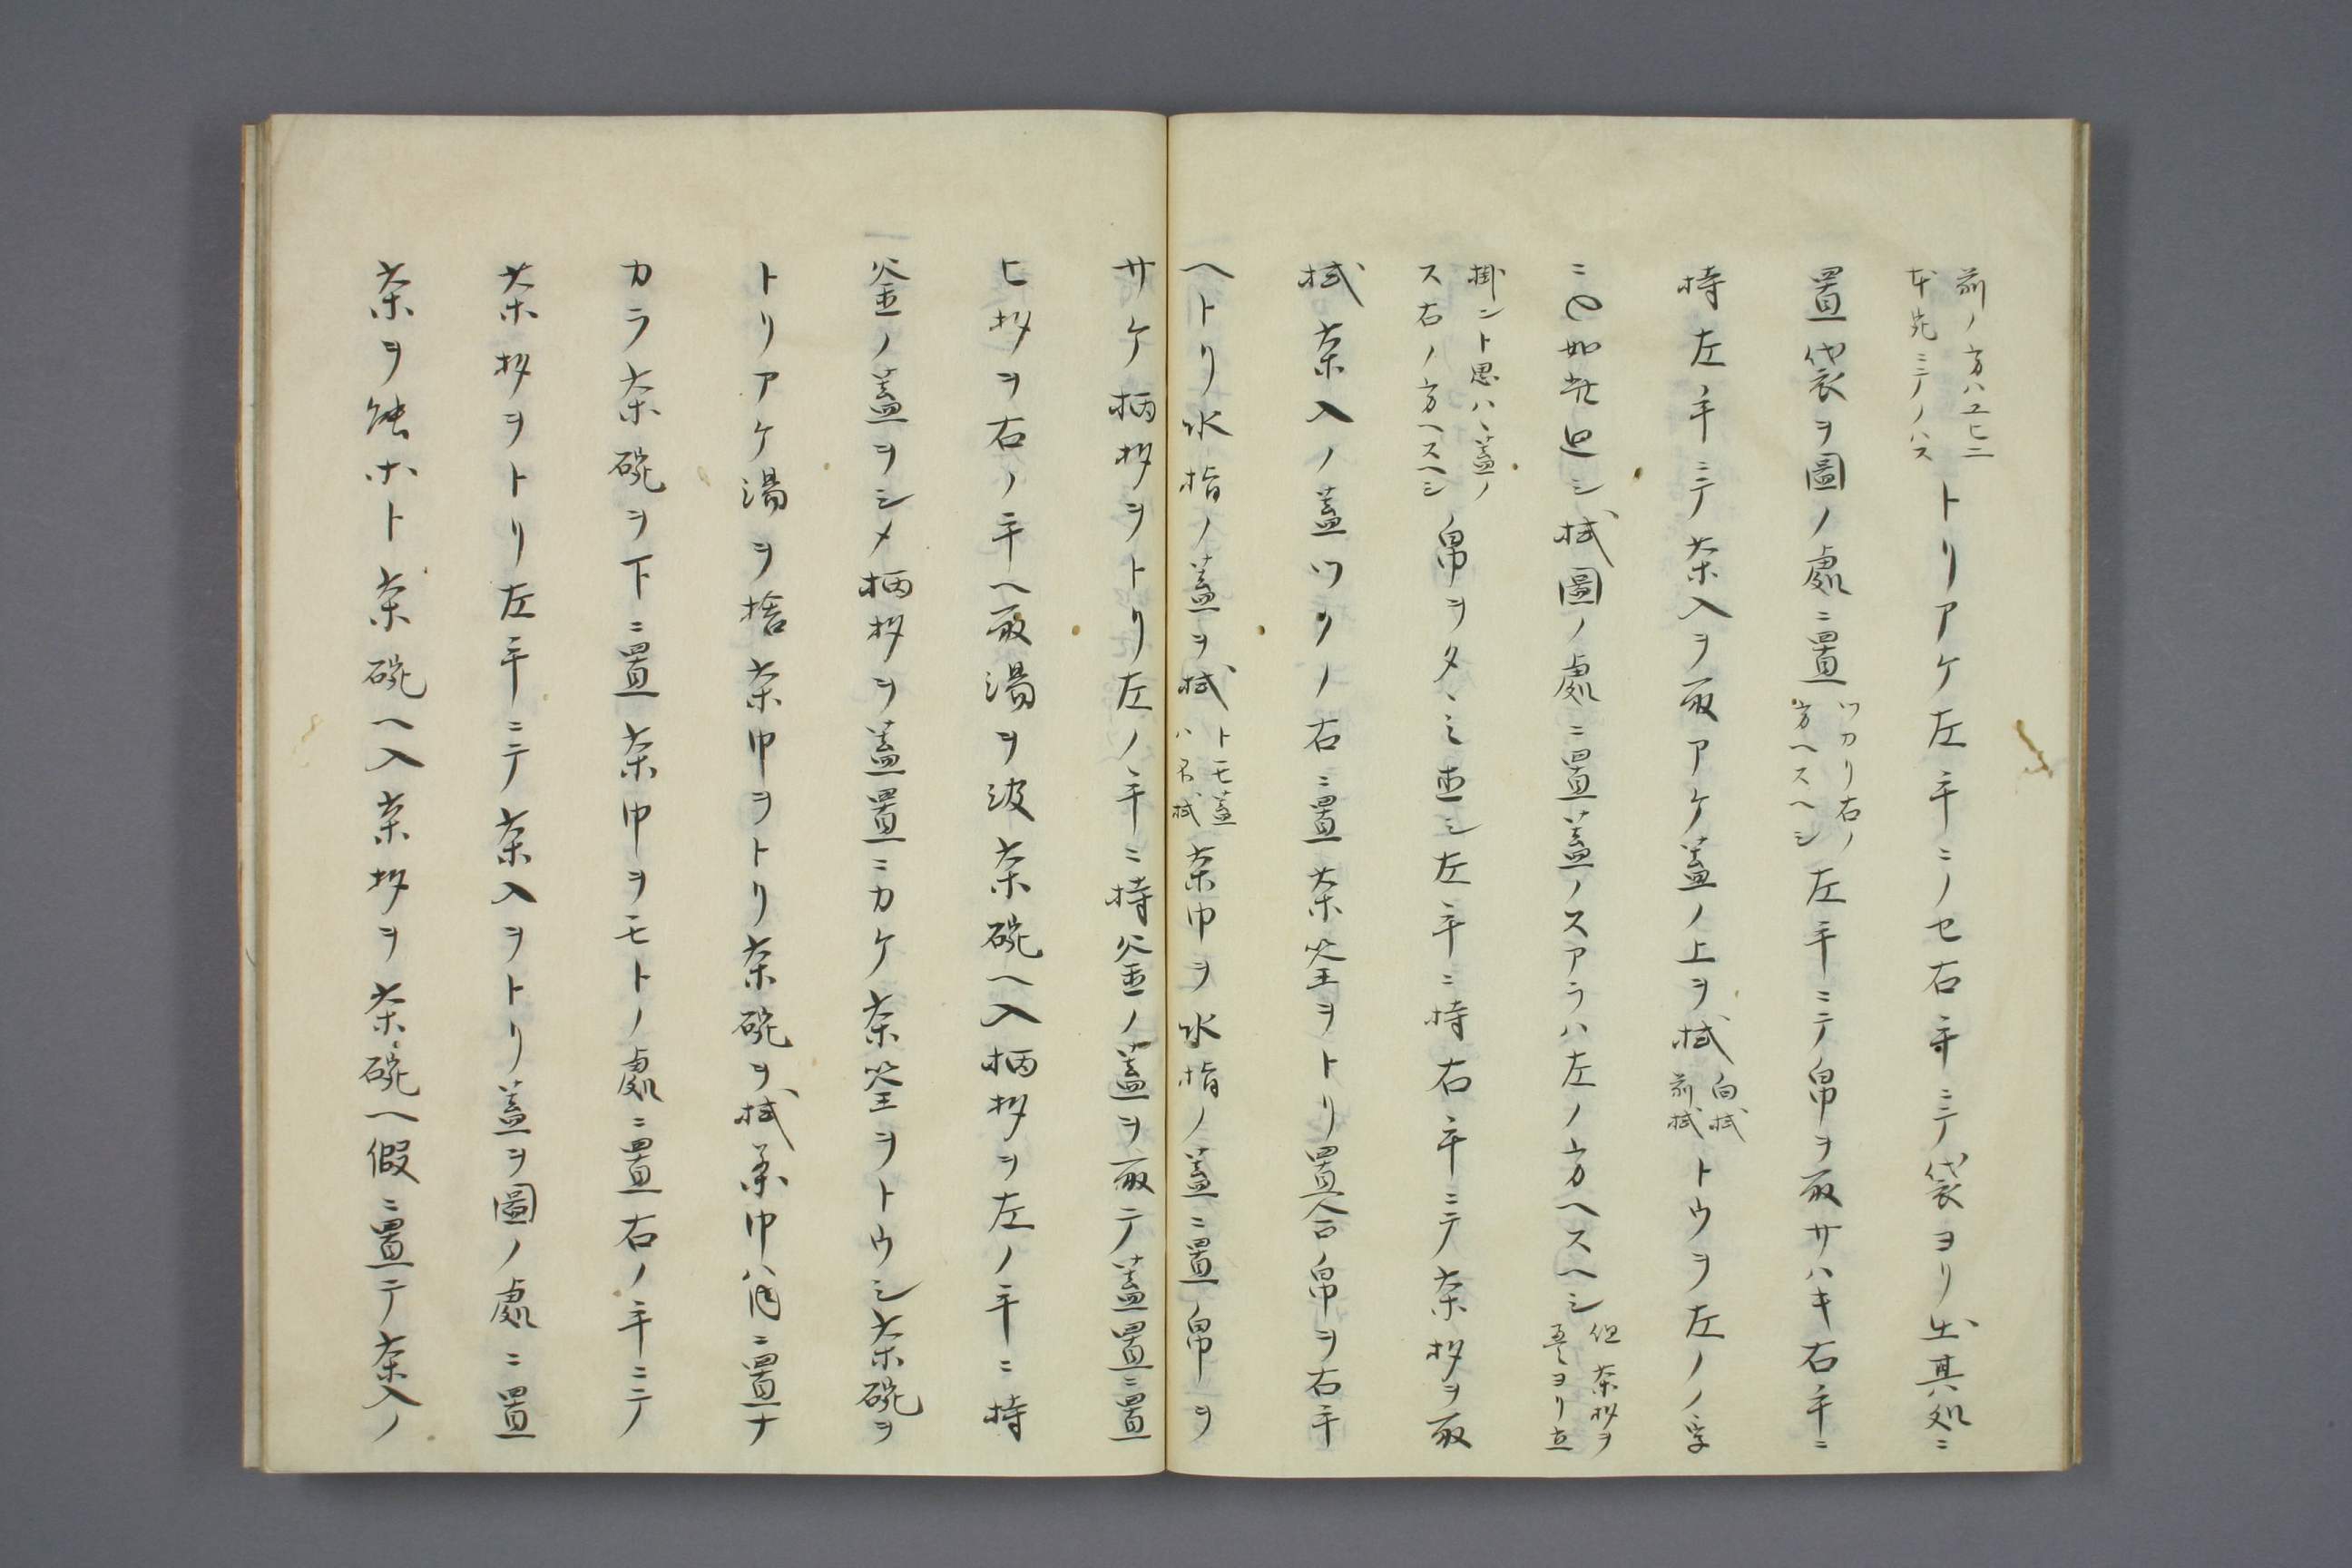 前ノ方ハユヒニ
トリアケ左手ニノセ右手ニテ袋ヨリ出其処ニ
置袋ヲ圖ノ處ニ置
ツカリ右ノ
方ヘスヘシ
左手ニテ帛ヲ取サハキ右手ニ
持左ノ手ニテ茶入ヲ取アケ蓋ノ上ヲ拭
向拭
前拭
トウヲ左ノ
如此廻シ拭圖ノ處ニ置蓋ノスアラハ左ノ方ヘスヘシ
但茶杓ヲ
ヨリ立
掛ント思ハヽ蓋ノ
ス右ノ方ヘスヘシ
帛ヲタヽミ直シ左手ニ持右手ニテ茶杓ヲ取
拭茶入ノ蓋ツクノ右ニ置茶筌ヲトリ置合帛ヲ右手
ヘトリ水指ノ蓋ヲ拭
トモ蓋
ハ不拭
茶巾ヲ水指ノ蓋ニ置帛ヲ
サケ柄杓ヲトリ左ノ手ニ持釜ノ蓋ヲ取テ蓋置ニ置
ヒ杓ヲ右ノ手ヘ取湯ヲ汲茶碗ヘ入柄杓ヲ左ノ手ニ持
釜ノ蓋ヲシメ柄杓ヲ蓋置ニカケ茶筌ヲトウシ茶碗ヲ
トリアケ湯ヲ捨茶巾ヲトリ茶碗ヲ拭茶巾ハ内ニ置ナ
カラ茶碗ヲ下ニ置茶巾ヲモトノ處ニ置右ノ手ニテ
茶杓ヲトリ左手ニテ茶入ヲトリ蓋ヲ圖ノ處ニ置
茶ヲ能ホト茶碗ヘ入茶杓ヲ茶碗ヘ假ニ置テ茶入ノ